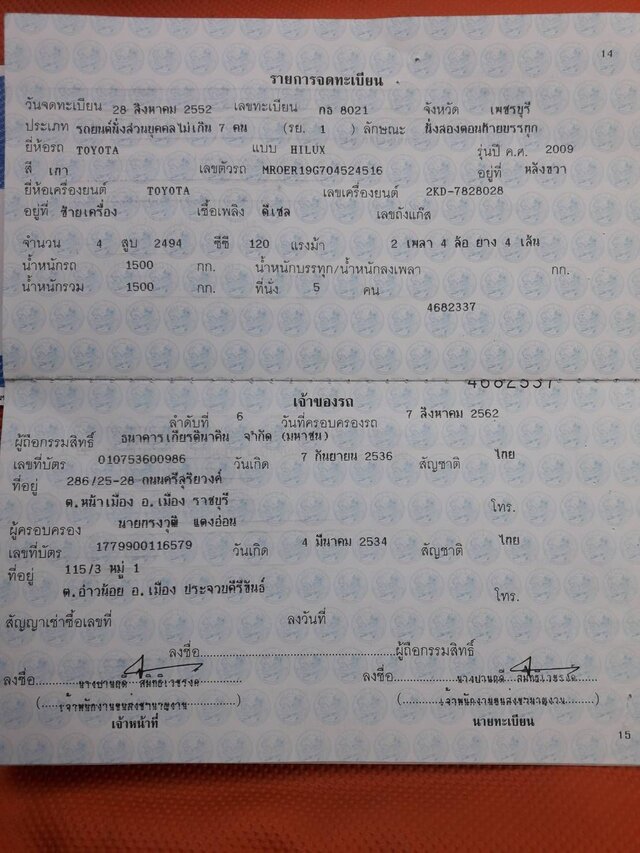 14
รายการจดทะเบียน
วันจดทะเบียน 28 สิงหาคม 2552 เลขทะเบียน กธ 8021 จังหวัด เพชรบุรี
ประเภท รถยนต์นั่งส่วนบุคคลไม่เกิน 7 คน (รย. 1 ) ลักษณะ นั่งสองตอนท้ายบรรทุก
ยี่ห้อรถ TOYOTA แบบ HILUX รุ่นปี ค.ศ. 2009
สี เทา เลขตัวรถ MROER19G704524516 อยู่ที่ หลังขวา
ยี่ห้อเครื่องยนต์ TOYOTA เลขเครื่องยนต์ 2KD-7828028
อยู่ที่ ซ้ายเครื่อง เชื้อเพลิง ดีเซล เลขถังแก๊ส
จำนวน 4 สูบ 2494 ซีซี 120 แรงม้า 2 เพลา 4 ล้อ ยาง 4 เส้น
น้ำหนักรถ 1500 กก. น้ำหนักบรรทุก/น้ำหนักลงเพลา กก.
น้ำหนักรวม 1500 กก. ที่นั่ง 5 คน
4682337
4682337
เจ้าของรถ
ลำดับที่ 6 วันที่ครอบครองรถ 7 สิงหาคม 2562
ผู้ถือกรรมสิทธิ์ ธนาคารเกียรตินาคิน จำกัด (มหาชน)
เลขที่บัตร 010753600986 วันเกิด 7 กันยายน 2536 สัญชาติ ไทย
ที่อยู่ 286/25-28 ถนนศรีสุริยวงค์
ต.หน้าเมือง อ.เมือง ราชบุรี โทร.
ผู้ครอบครอง นายทรงวุฒิ แตงอ่อน
เลขที่บัตร 1779900116579 วันเกิด 4 มีนาคม 2534 สัญชาติ ไทย
ที่อยู่ 115/3 หมู่ 1
ต.อ่าวน้อย อ.เมือง ประจวบคีรีขันธ์ โทร.
สัญญาเช่าซื้อเลขที่ ลงวันที่
ลงชื่อ ผู้ถือกรรมสิทธิ์
ลงชื่อ ลงชื่อ
(เจ้าพนักงานขนส่งชำนาญงาน) (เจ้าพนักงานขนส่งชำนาญงาน)
เจ้าหน้าที่ นายทะเบียน
15